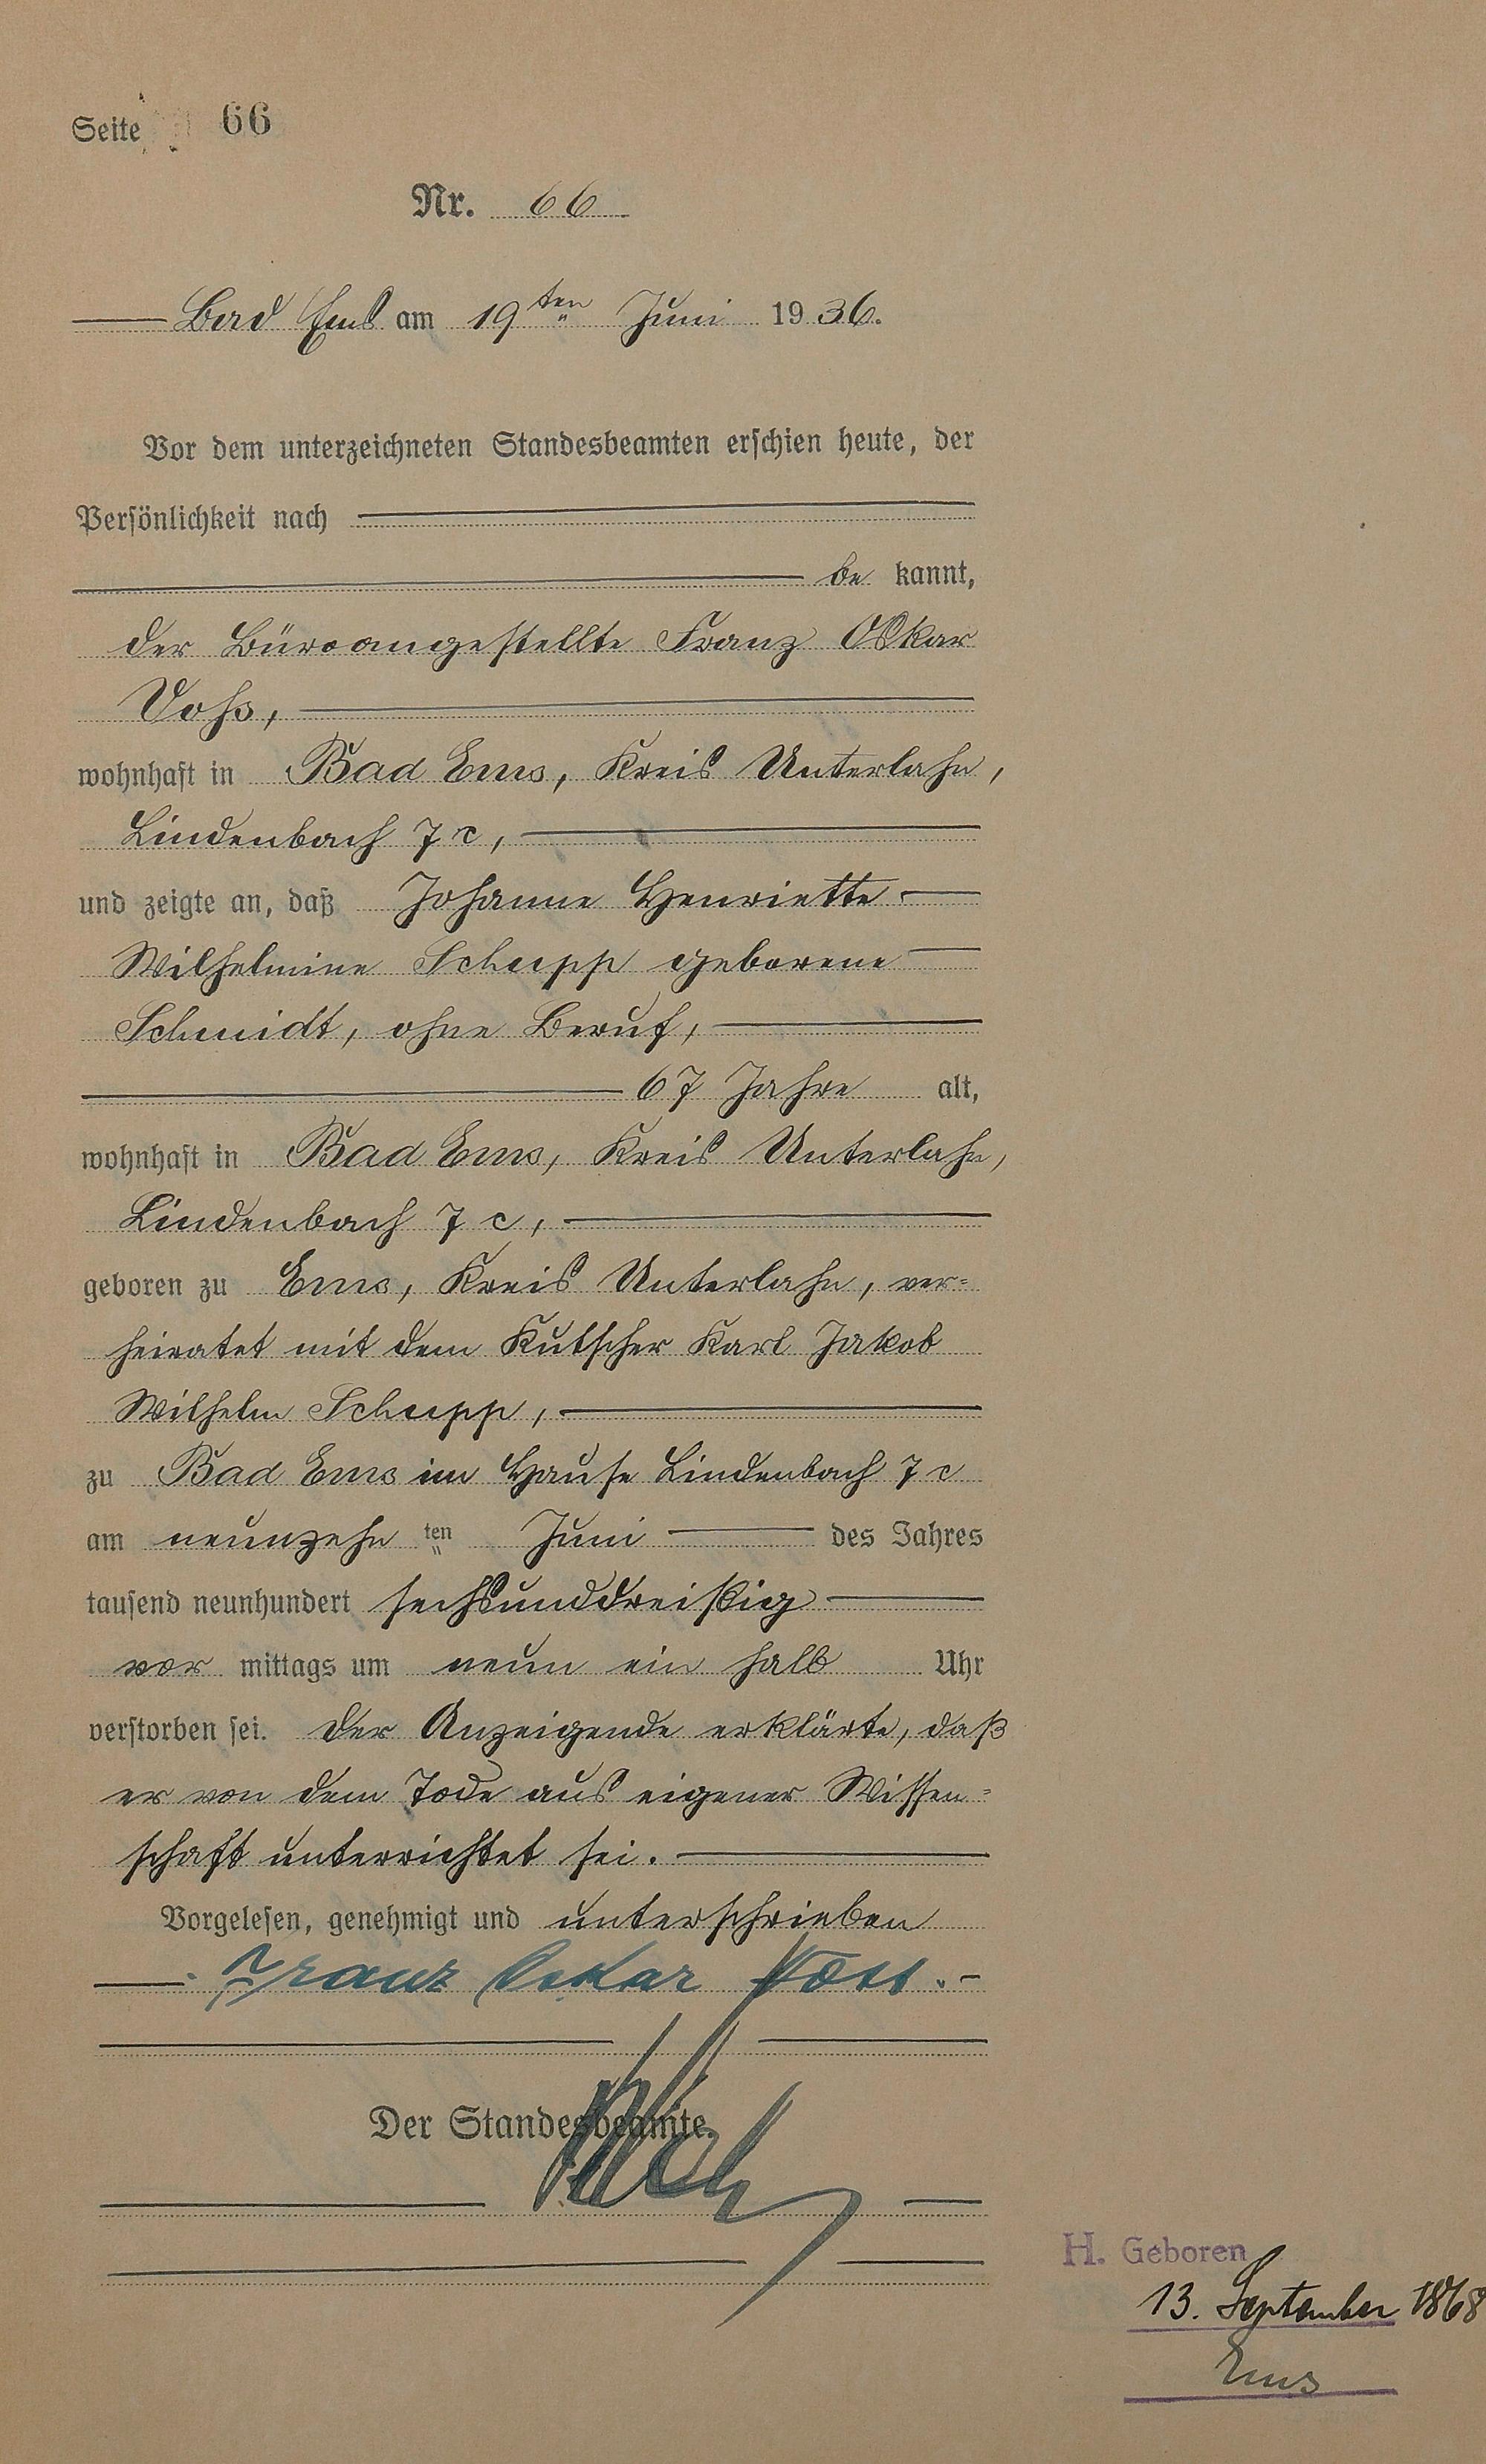 Seite 66
Nr. 66
Bad Ems am 19ten Juni 1936.
Vor dem unterzeichneten Standesbeamten erschien heute, der
Persönlichkeit nach
be kannt,
der Büroangestellte Franz Oskar
Voß,
wohnhaft in Bad Ems, Kreis Unterlahn,
Lindenbach 7c,
und zeigte an, daß Johanne Henriette
Wilhelmine Schupp geborene
Schmidt, ohne Beruf,
67 Jahre alt,
wohnhaft in Bad Ems, Kreis Unterlahn,
Lindenbach 7 c,
geboren zu Ems, Kreis Unterlahn, ver=
heiratet mit dem Kutscher Karl Jakob
Wilhelm Schupp,
zu Bad Ems im Hause Lindenbach 7 c
am neunzehn ten Juni des Jahres
tausend neunhundert sechsunddreißig
vor mittags um neun ein halb Uhr
verstorben sei. Der Anzeigende erklärte, daß
er von dem Tode aus eigener Wissen=
schaft unterrichtet sei.
Vorgelesen, genehmigt und unterschrieben
Franz Oskar Voss.
Der Standesbeamte.
H. Geboren
13. September 1868
Ems